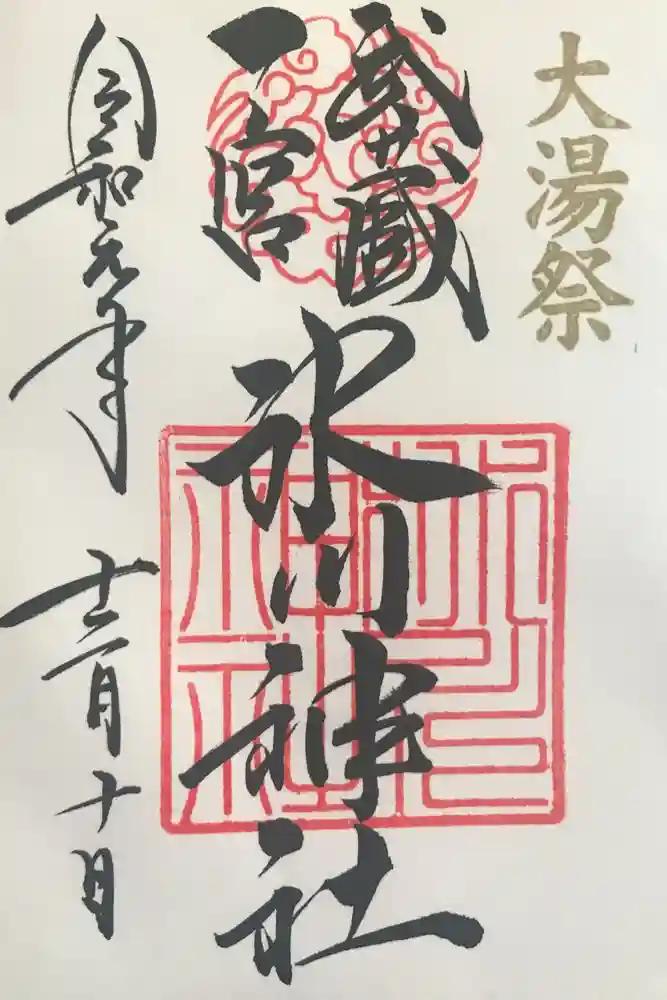 大湯祭
武蔵
一宮
氷川神社
令和元年
十二月十日